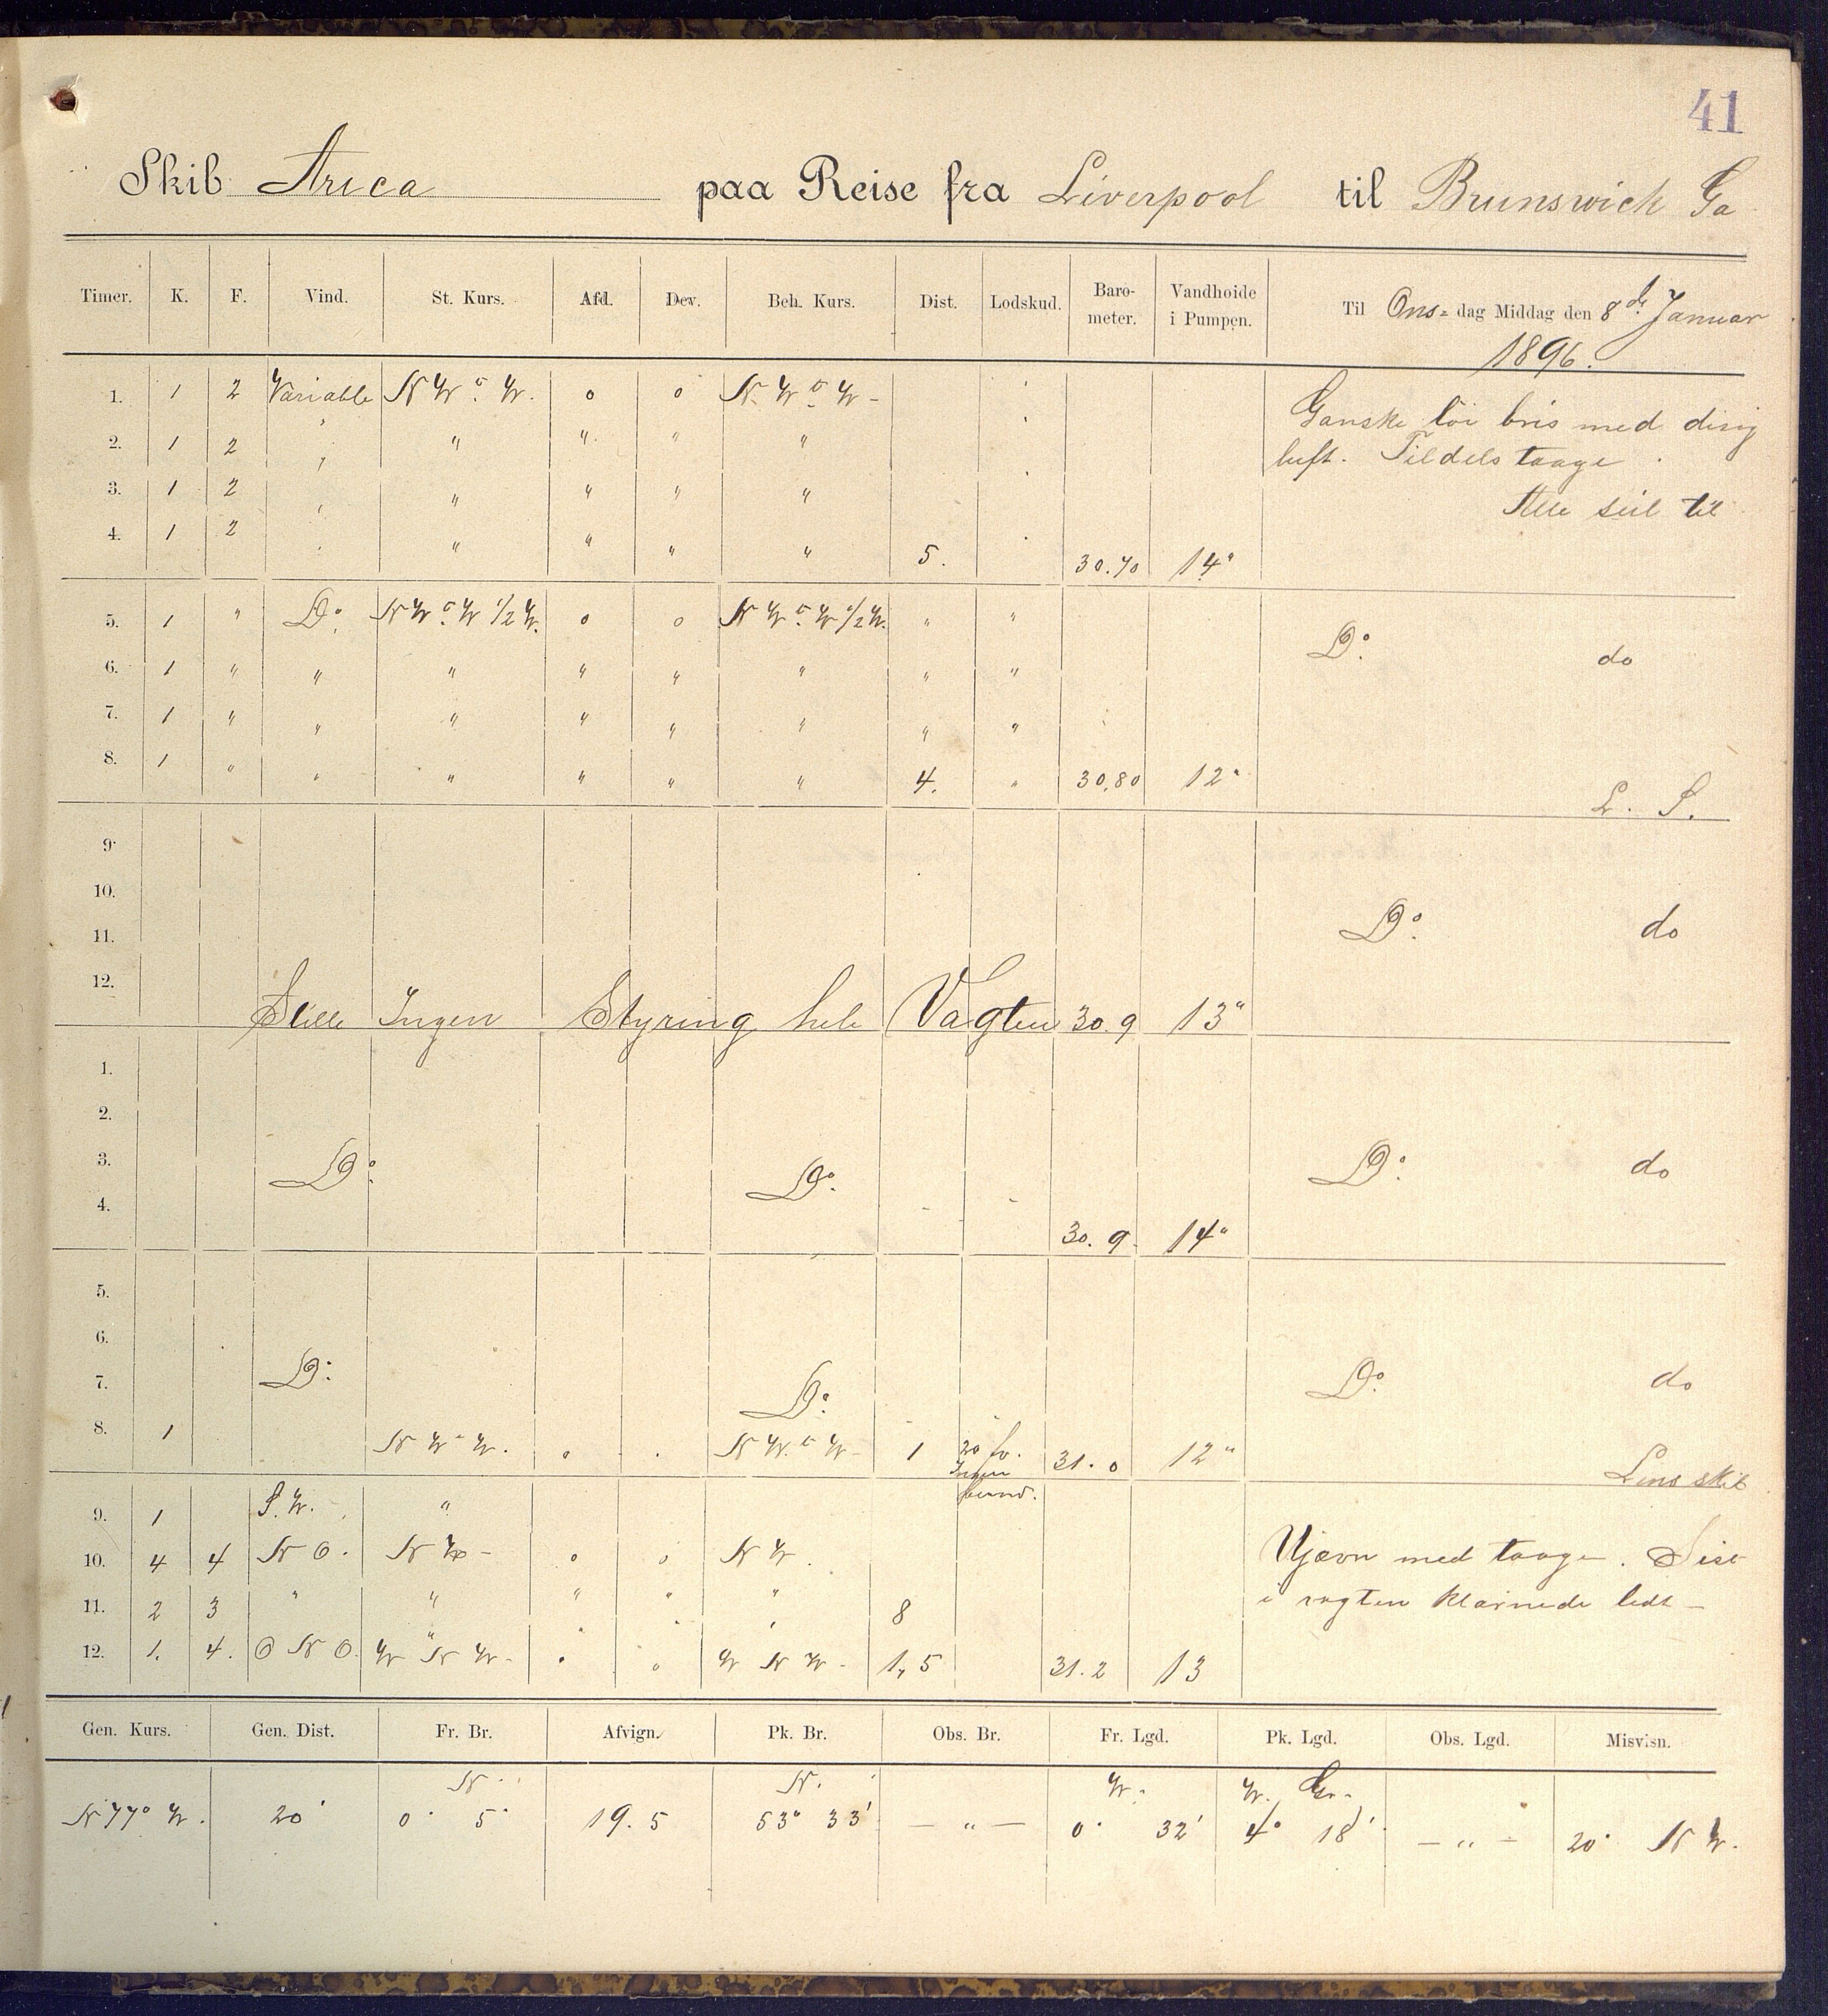 41
Skib Arica paa Reise fra Liverpool til Brunswick Ga
Timer. K. F. Vind. St. Kurs. Afd. Dev. Beh. Kurs. Dist. Lodskud. Baro-meter. Vandhoide i Pumpen. Til Ons= dag Middag den 8de Januar
1896.
1. 1 2 Variable N W t. W. 0 0 N W t. W - Ganske löi bris med disig
2. 1 2 " " " " " luft. Tildels taage
3. 1 2 " " " " " Alle seil til
4. 1 2 " " " " " 5. 30.70 14"
5. 1 " Do. N W t. W 1/2 W. 0 0 N W t. W 1/2 W. " " Do. do
6. 1 " " " " " " " "
7. 1 " " " " " " " "
8. 1 " " " " " " 4. " 30,80 12" L. S.
9.
10.
11. Do. do
12. Stille Ingen Styring hele Vagten 30.9 13"
1.
2.
3. Do. Do. Do. do
4. 30.9 14"
5.
6.
7. Do. Do. Do. do
8. 1 N W t. W. 0 . N W. t. W - 1 20 fv. Ingen bund. 31.0 12" Lens skib
9. 1 S. W. "
10. 4 4 N O. N W - 0 0 N W. Ujævn med taage. Sist
11. 2 3 " " " " " 8 i vagten klarnede lidt -
12. 1. 4. O N O. W N W - 0 0 W N W - 1,5 31.2 13
Gen. Kurs. Gen. Dist. Fr. Br. Afvign. Pk. Br. Obs. Br. Fr. Lgd. Pk. Lgd. Obs. Lgd. Misvisn.
N. N. W. W. Gr.
N 77° W. 20' 0° 5' 19.5 53° 33' — " — 0° 32' 4° 18' — " — 20° N W.